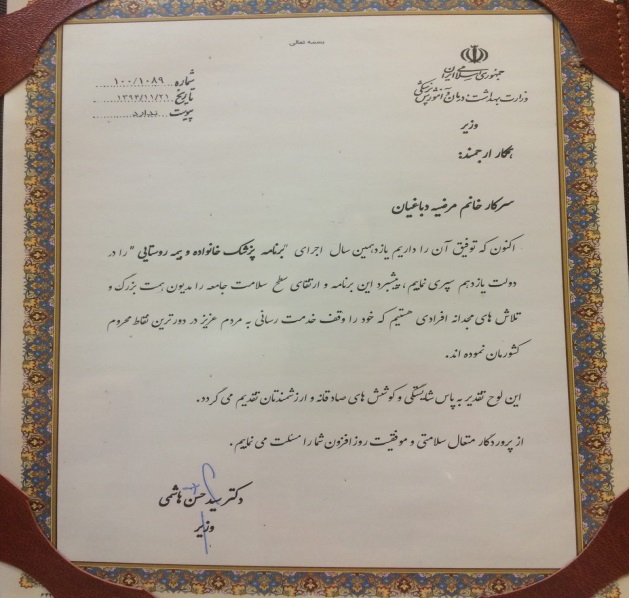 بسمه تعالی
جمهوری اسلامی ایران
وزارت بهداشت، درمان و آموزش پزشکی
وزیر
شماره ۱۰۰/۱۰۸۹
تاریخ ۱۳۹۴/۱۱/۲۱
پیوست ندارد
همکار ارجمند:
سرکار خانم مرضیه دباغیان
اکنون که توفیق آن را داریم یازدهمین سال اجرای "برنامه پزشک خانواده و بیمه روستایی" را در
دولت یازدهم سپری نماییم، پیشبرد این برنامه و ارتقای سطح سلامت جامعه را مدیون همت بزرگ و
تلاش های مجدانه افرادی هستیم که خود را وقف خدمت رسانی به مردم عزیز در دورترین نقاط محروم
کشورمان نموده اند.
این لوح تقدیر به پاس شایستگی و کوشش های صادقانه و ارزشمندتان تقدیم می گردد.
از پروردگار متعال سلامتی و موفقیت روزافزون شما را مسئلت می نماییم.
دکتر سید حسن هاشمی
وزیر